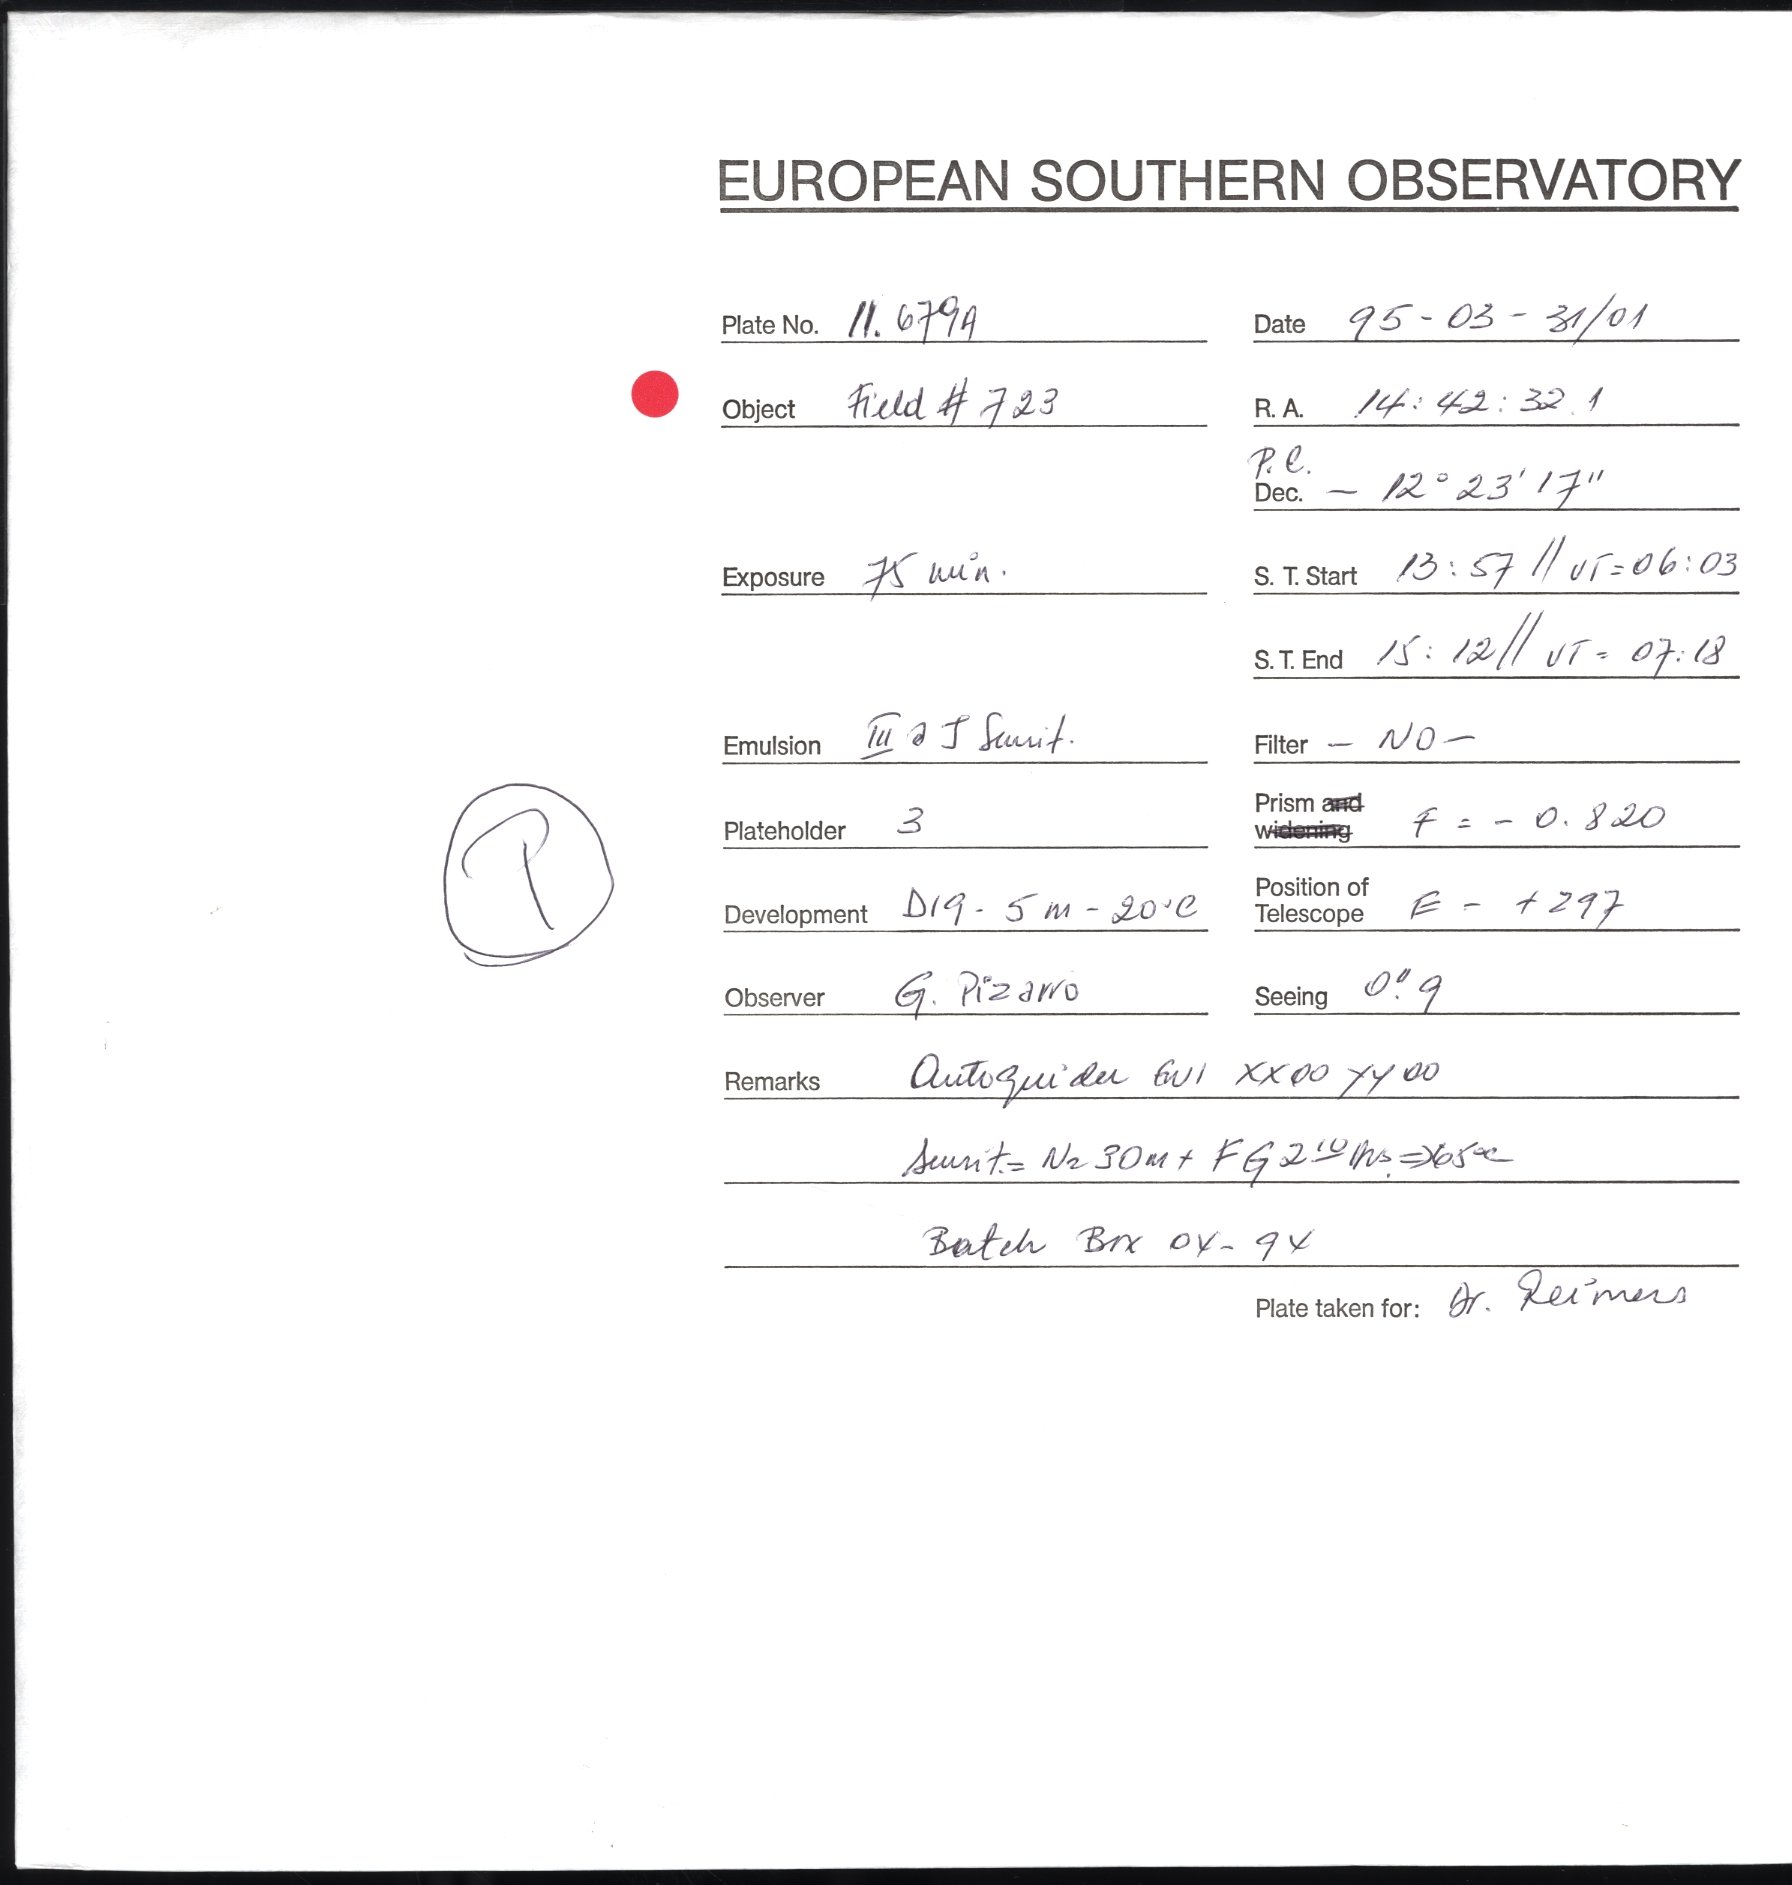 EUROPEAN SOUTHERN OBSERVATORY
Plate No. 11.679A Date 95-03-31/01
Object Field # 723 R. A. 14:42:32.1
P.C.
Dec. – 12° 23' 17"
Exposure 75 min. S. T. Start 13:57 // UT=06:03
S. T. End 15:12 // UT= 07:18
Emulsion III a J Sensit. Filter – NO –
Plateholder 3 Prism and widening F = - 0.820
Development D19 - 5 m - 20°C Position of Telescope E - +297
Observer G. Pizarro Seeing 0".9
Remarks Autoguider XX00 YY00
Sensit.= N2 30m + FG 2 Hrs. => 65°C
Batch Box 04-94
Plate taken for: Dr. Reimers
P